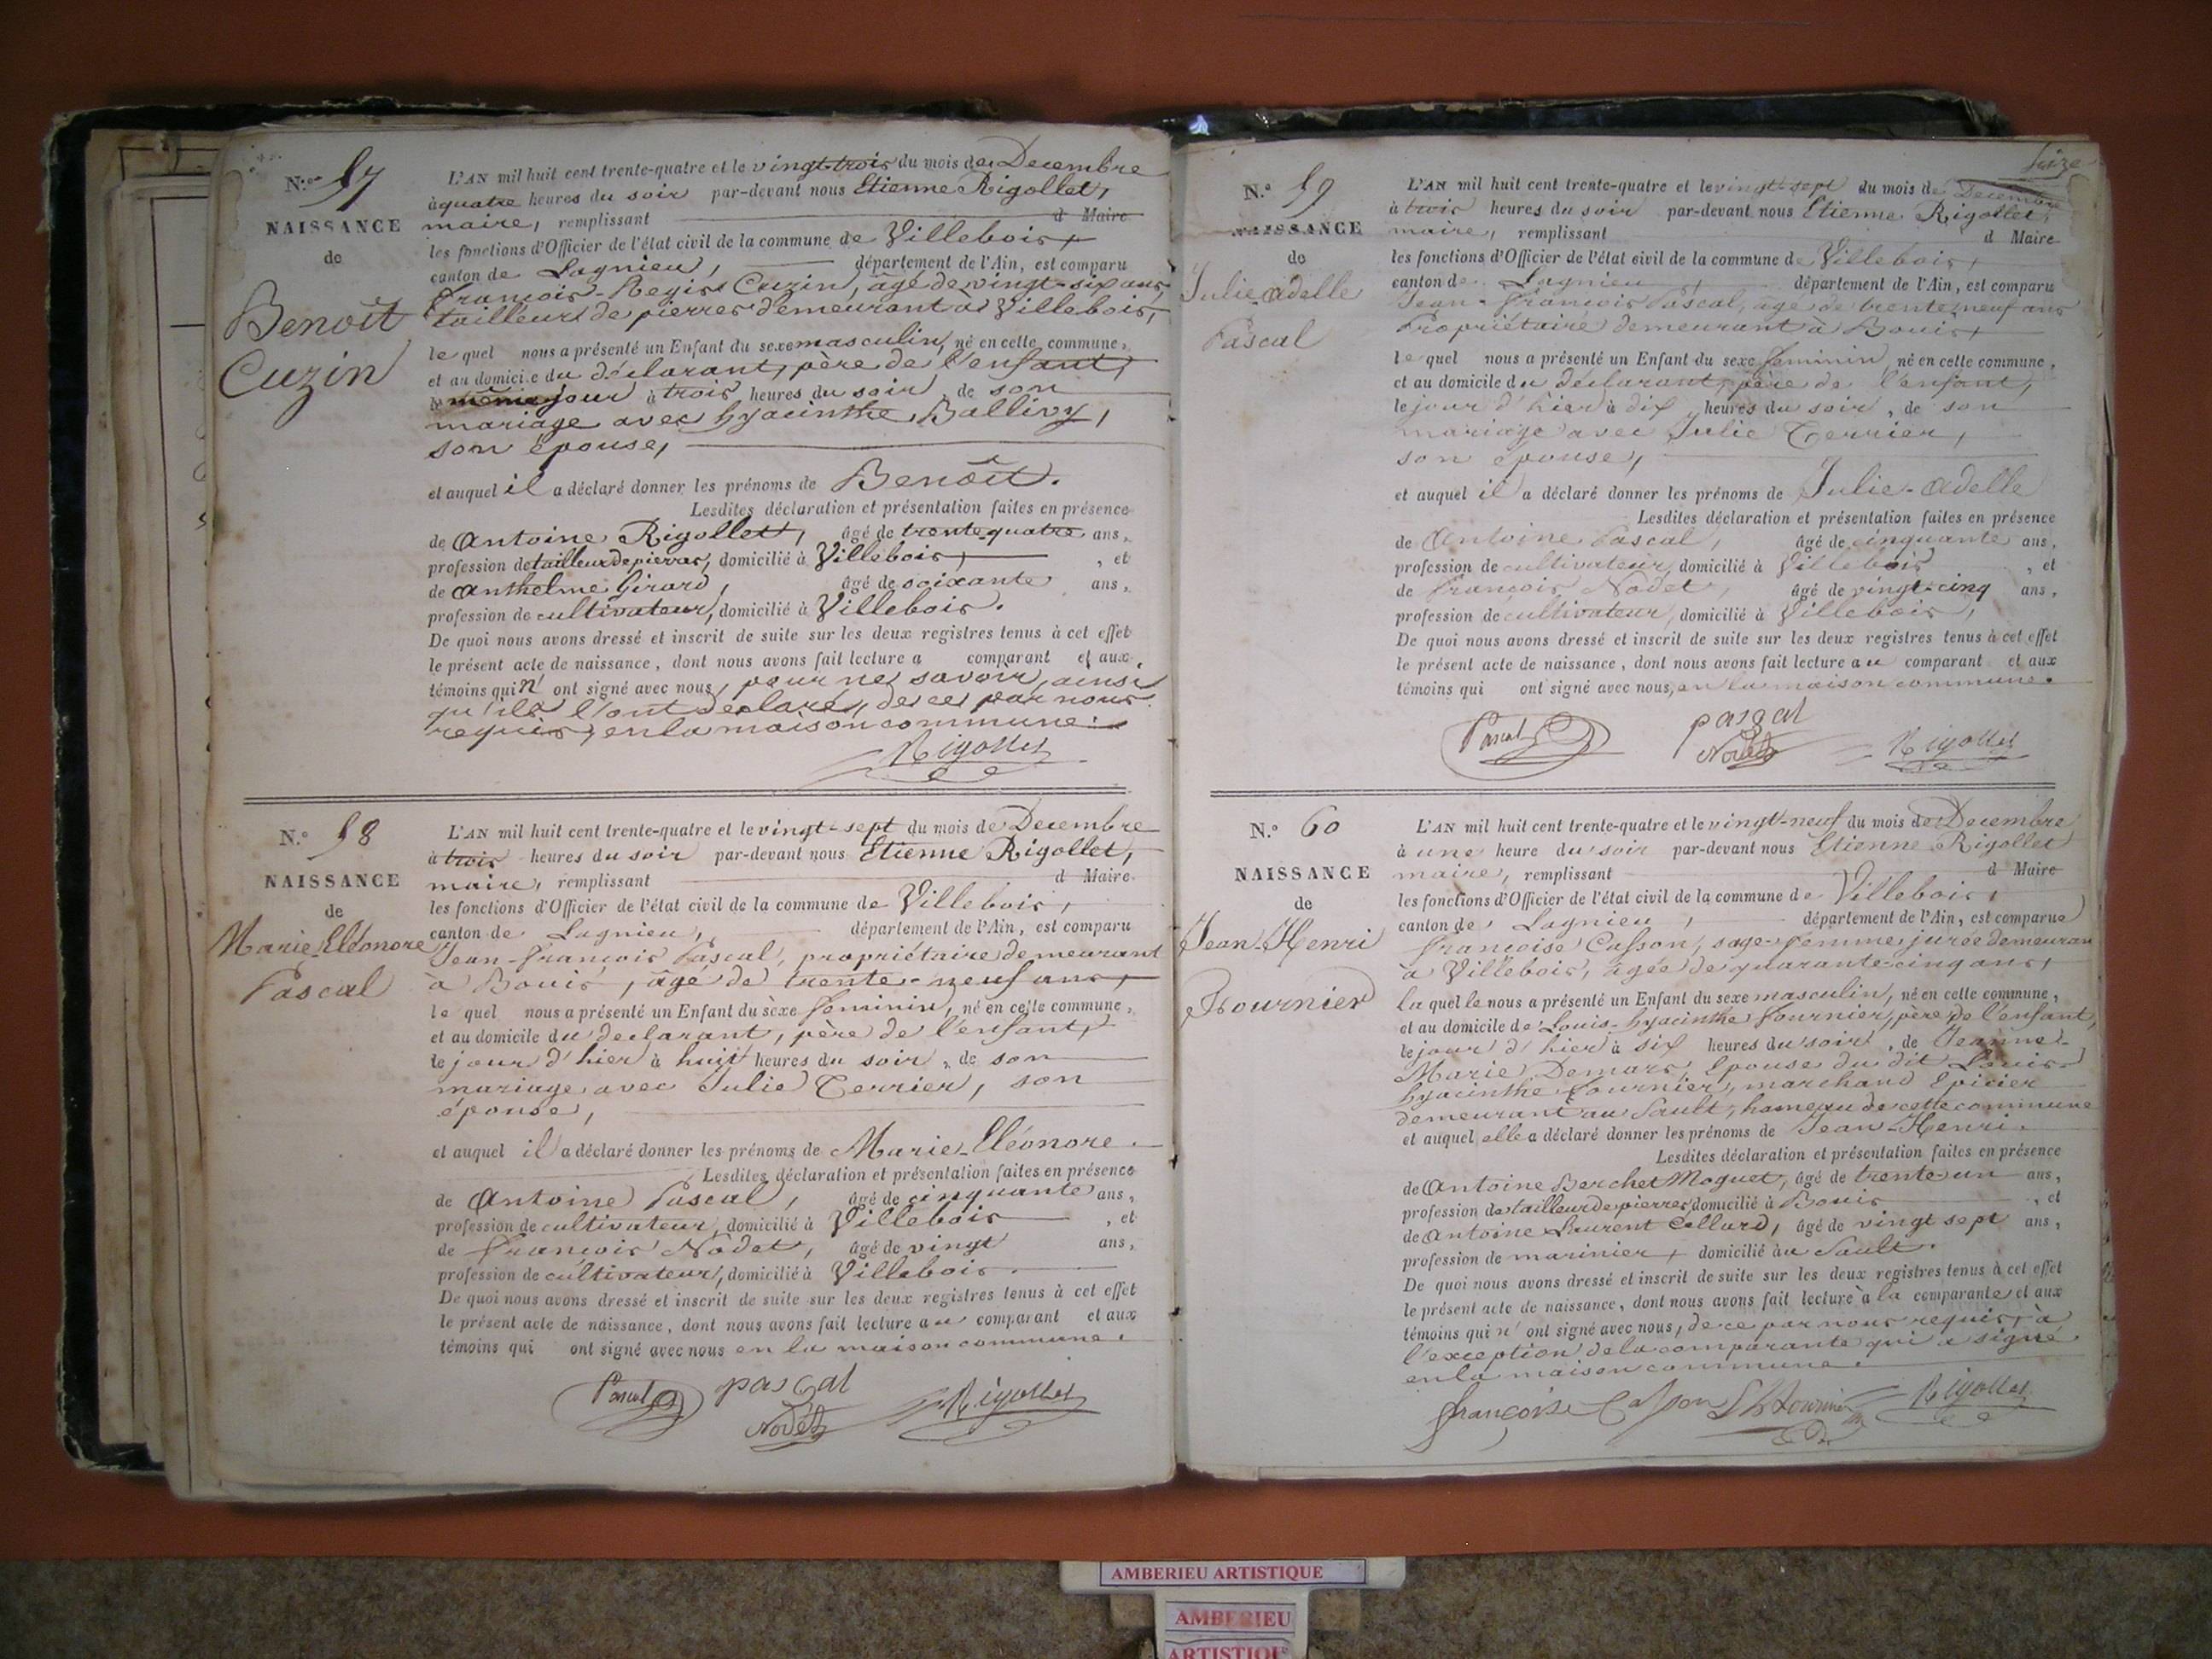 N.º 57
NAISSANCE
de
Benoît
Cuzin
L'AN mil huit cent trente-quatre et le vingt-trois du mois de Decembre
à quatre heures du soir par-devant nous Etienne Rigollet,
maire, remplissant d Maire
les fonctions d'Officier de l'état civil de la commune de Villebois,
canton de Lagnieu, département de l'Ain, est comparu
François-Regis Cuzin, âgé de vingt-six ans,
tailleur de pierres demeurant à Villebois,
le quel nous a présenté un Enfant du sexe masculin, né en cette commune,
et au domicile du déclarant, père de l'enfant,
le même jour à trois heures du soir, de son
mariage avec hyacinthe Ballivy,
son épouse,
et auquel il a déclaré donner les prénoms de Benoît.
Lesdites déclaration et présentation faites en présence
de Antoine Rigollet, âgé de trente-quatre ans,
profession de tailleur de pierres, domicilié à Villebois, et
de Anthelme Girard, âgé de soixante ans,
profession de cultivateur, domicilié à Villebois.
De quoi nous avons dressé et inscrit de suite sur les deux registres tenus à cet effet
le présent acte de naissance, dont nous avons fait lecture a comparant et aux
témoins qui n' ont signé avec nous, pour ne savoir, ainsi
qu'ils l'ont déclaré, de ce par nous
requis, en la maison commune.
Rigollet
N.º 58
NAISSANCE
de
Marie Eléonore
Pascal
L'AN mil huit cent trente-quatre et le vingt-sept du mois de Decembre
à trois heures du soir par-devant nous Etienne Rigollet,
maire, remplissant d Maire
les fonctions d'Officier de l'état civil de la commune de Villebois,
canton de Lagnieu, département de l'Ain, est comparu
Jean-François Pascal, propriétaire demeurant
à Bouis, âgé de trente-neuf ans,
le quel nous a présenté un Enfant du sexe feminin, né en cette commune,
et au domicile du declarant, père de l'enfant,
le jour d'hier à huit heures du soir, de son
mariage avec Julie Terrier, son
épouse,
et auquel il a déclaré donner les prénoms de Marie-Eléonore.
Lesdites déclaration et présentation faites en présence
de Antoine Pascal, âgé de cinquante ans,
profession de cultivateur, domicilié à Villebois, et
de François Nodet, âgé de vingt ans,
profession de cultivateur, domicilié à Villebois.
De quoi nous avons dressé et inscrit de suite sur les deux registres tenus à cet effet
le présent acte de naissance, dont nous avons fait lecture au comparant et aux
témoins qui ont signé avec nous en la maison commune.
Pascal pascal Rigollet
Nodet
Seize
N.º 59
NAISSANCE
de
Julie-Adelle
Pascal
L'AN mil huit cent trente-quatre et le vingt-sept du mois de Decembre
à trois heures du soir par-devant nous Etienne Rigollet,
maire, remplissant d Maire
les fonctions d'Officier de l'état civil de la commune de Villebois,
canton de Lagnieu, département de l'Ain, est comparu
Jean-François Pascal, âgé de trente-neuf ans
Propriétaire demeurant à Bouis,
le quel nous a présenté un Enfant du sexe feminin, né en cette commune,
et au domicile du déclarant, père de l'enfant,
le jour d'hier à dix heures du soir, de son
mariage avec Julie Terrier,
son épouse,
et auquel il a déclaré donner les prénoms de Julie-Adelle
Lesdites déclaration et présentation faites en présence
de Antoine Pascal, âgé de cinquante ans,
profession de cultivateur, domicilié à Villebois, et
de François Nodet, âgé de vingt-cinq ans,
profession de cultivateur, domicilié à Villebois,
De quoi nous avons dressé et inscrit de suite sur les deux registres tenus à cet effet
le présent acte de naissance, dont nous avons fait lecture au comparant et aux
témoins qui ont signé avec nous, en la maison commune.
Pascal pascal Rigollet
Nodet
N.º 60
NAISSANCE
de
Jean-Henri
Fournier
L'AN mil huit cent trente-quatre et le vingt-neuf du mois de Decembre
à une heure du soir par-devant nous Etienne Rigollet
maire, remplissant d Maire
les fonctions d'Officier de l'état civil de la commune de Villebois,
canton de Lagnieu, département de l'Ain, est comparue
Françoise Casson, sage-femme jurée demeurant
à Villebois, âgée de quarante-cinq ans,
la quelle nous a présenté un Enfant du sexe masculin, né en cette commune,
et au domicile de Louis-hyacinthe Fournier, père de l'enfant,
le jour d'hier à six heures du soir, de Jeanne-
Marie Demars, Epouse du dit Louis-
hyacinthe Fournier, marchand Epicier
demeurant au Sault, hameau de cette commune
et auquel elle a déclaré donner les prénoms de Jean-Henri.
Lesdites déclaration et présentation faites en présence
de Antoine Berchet Moguet, âgé de trente-un ans,
profession de tailleur de pierres domicilié à Bouis, et
de Antoine Laurent Collard, âgé de vingt sept ans,
profession de marinier, domicilié au Sault.
De quoi nous avons dressé et inscrit de suite sur les deux registres tenus à cet effet
le présent acte de naissance, dont nous avons fait lecture à la comparante et aux
témoins qui n' ont signé avec nous, de ce par nous requis, à
l'exception de la comparante qui a signé
en la maison commune.
françoise Casson L h fournier Rigollet
AMBERIEU ARTISTIQUE
AMBERIEU
ARTISTIQUE